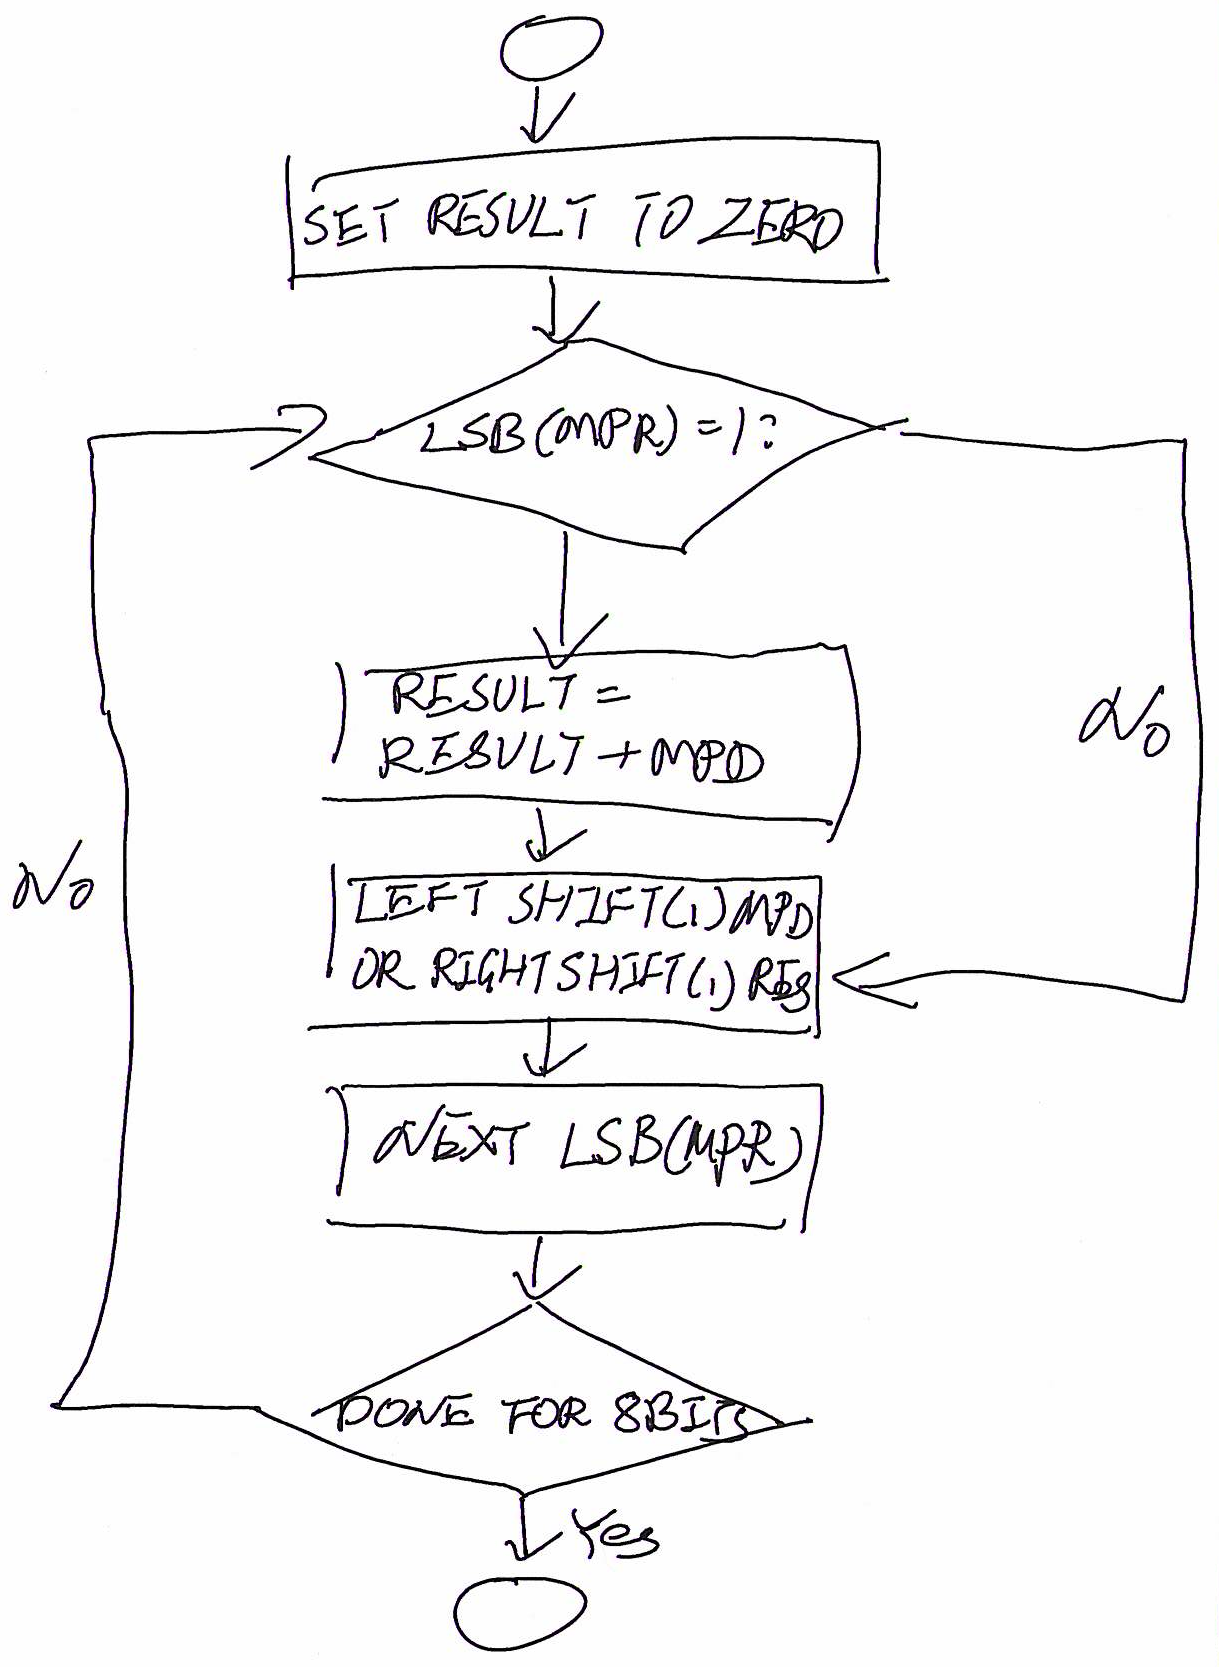 SET RESULT TO ZERO
LSB(MPR)=1?
RESULT =
RESULT + MPD
No
LEFT SHIFT(1) MPD
OR RIGHT SHIFT(1) RES
No
NEXT LSB(MPR)
DONE FOR 8BITS
Yes